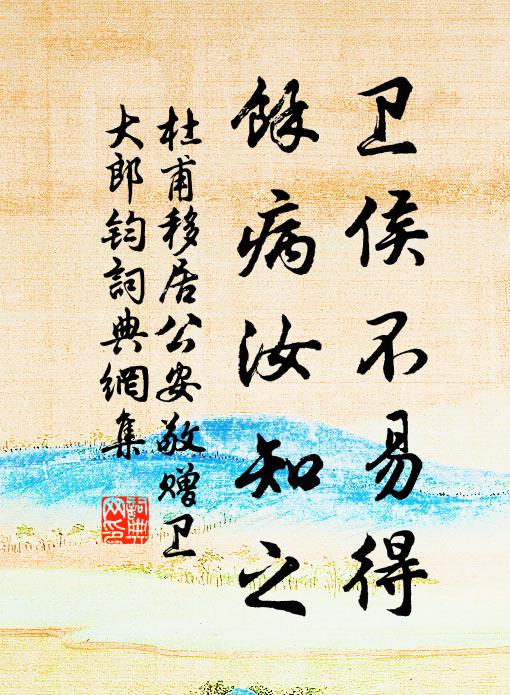 卫侯不易得
餘病汝知之
杜甫移居公安敬赠卫
大郎钧詞典網集